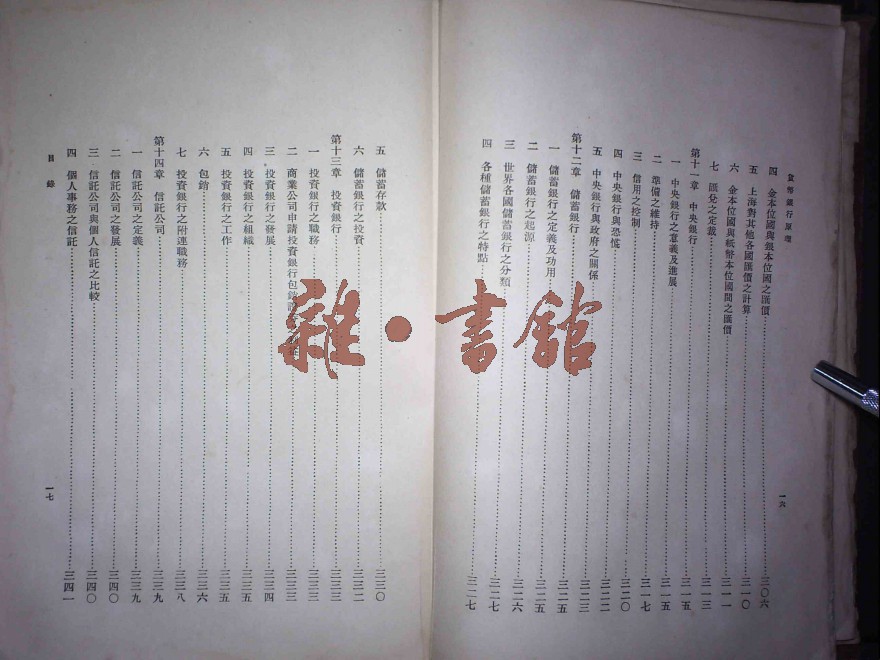 貨幣銀行原理
四 金本位國與銀本位國之匯價……三〇六
五 上海對其他各國匯價之計算……三一〇
六 金本位國與紙幣本位國間之匯價……三一一
七 匯兌之定裁……三一三
第十一章 中央銀行……三一五
一 中央銀行之意義及進展……三一五
二 準備之維持……三一七
三 信用之控制……三二〇
四 中央銀行與恐慌……三二二
五 中央銀行與政府之關係……三二三
第十二章 儲蓄銀行……三二五
一 儲蓄銀行之定義及功用……三二五
二 儲蓄銀行之起源……三二六
三 世界各國儲蓄銀行之分類……三二七
四 各種儲蓄銀行之特點……三二七
一六
五 儲蓄存款……三三〇
六 儲蓄銀行之投資……三三二
第十三章 投資銀行……三三三
一 投資銀行之職務……三三三
二 商業公司申請投資銀行包銷……三三三
三 投資銀行之發展……三三四
四 投資銀行之組織……三三五
五 投資銀行之工作……三三五
六 包銷……三三六
七 投資銀行之附連職務……三三八
第十四章 信託公司……三三九
一 信託公司之定義……三三九
二 信託公司之發展……三四〇
三 信託公司與個人信託之比較……三四〇
四 個人事務之信託……三四一
目錄
一七
雜·書館